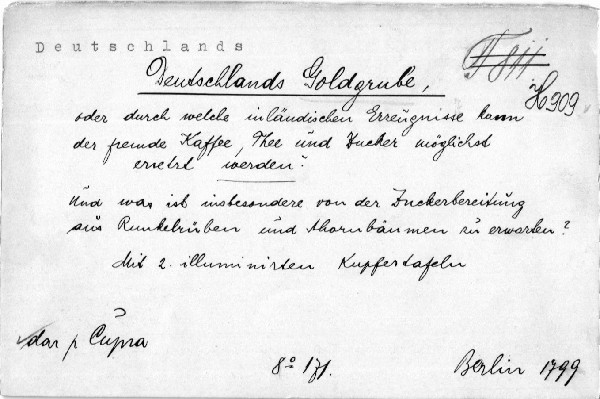 Deutschlands
Deutschlands Goldgrube,
H 909
oder durch welche inländischen Erzeugnisse kann
der fremde Kaffee, Thee und Zucker möglichst
ersetzt werden?
Und was ist insbesondere von der Zuckerbereitung
aus Runkelrüben und Ahornbäumen zu erwarten?
Mit 2. illuminirten Kupfertafeln
dar p Čupra
8° 171.
Berlin 1799